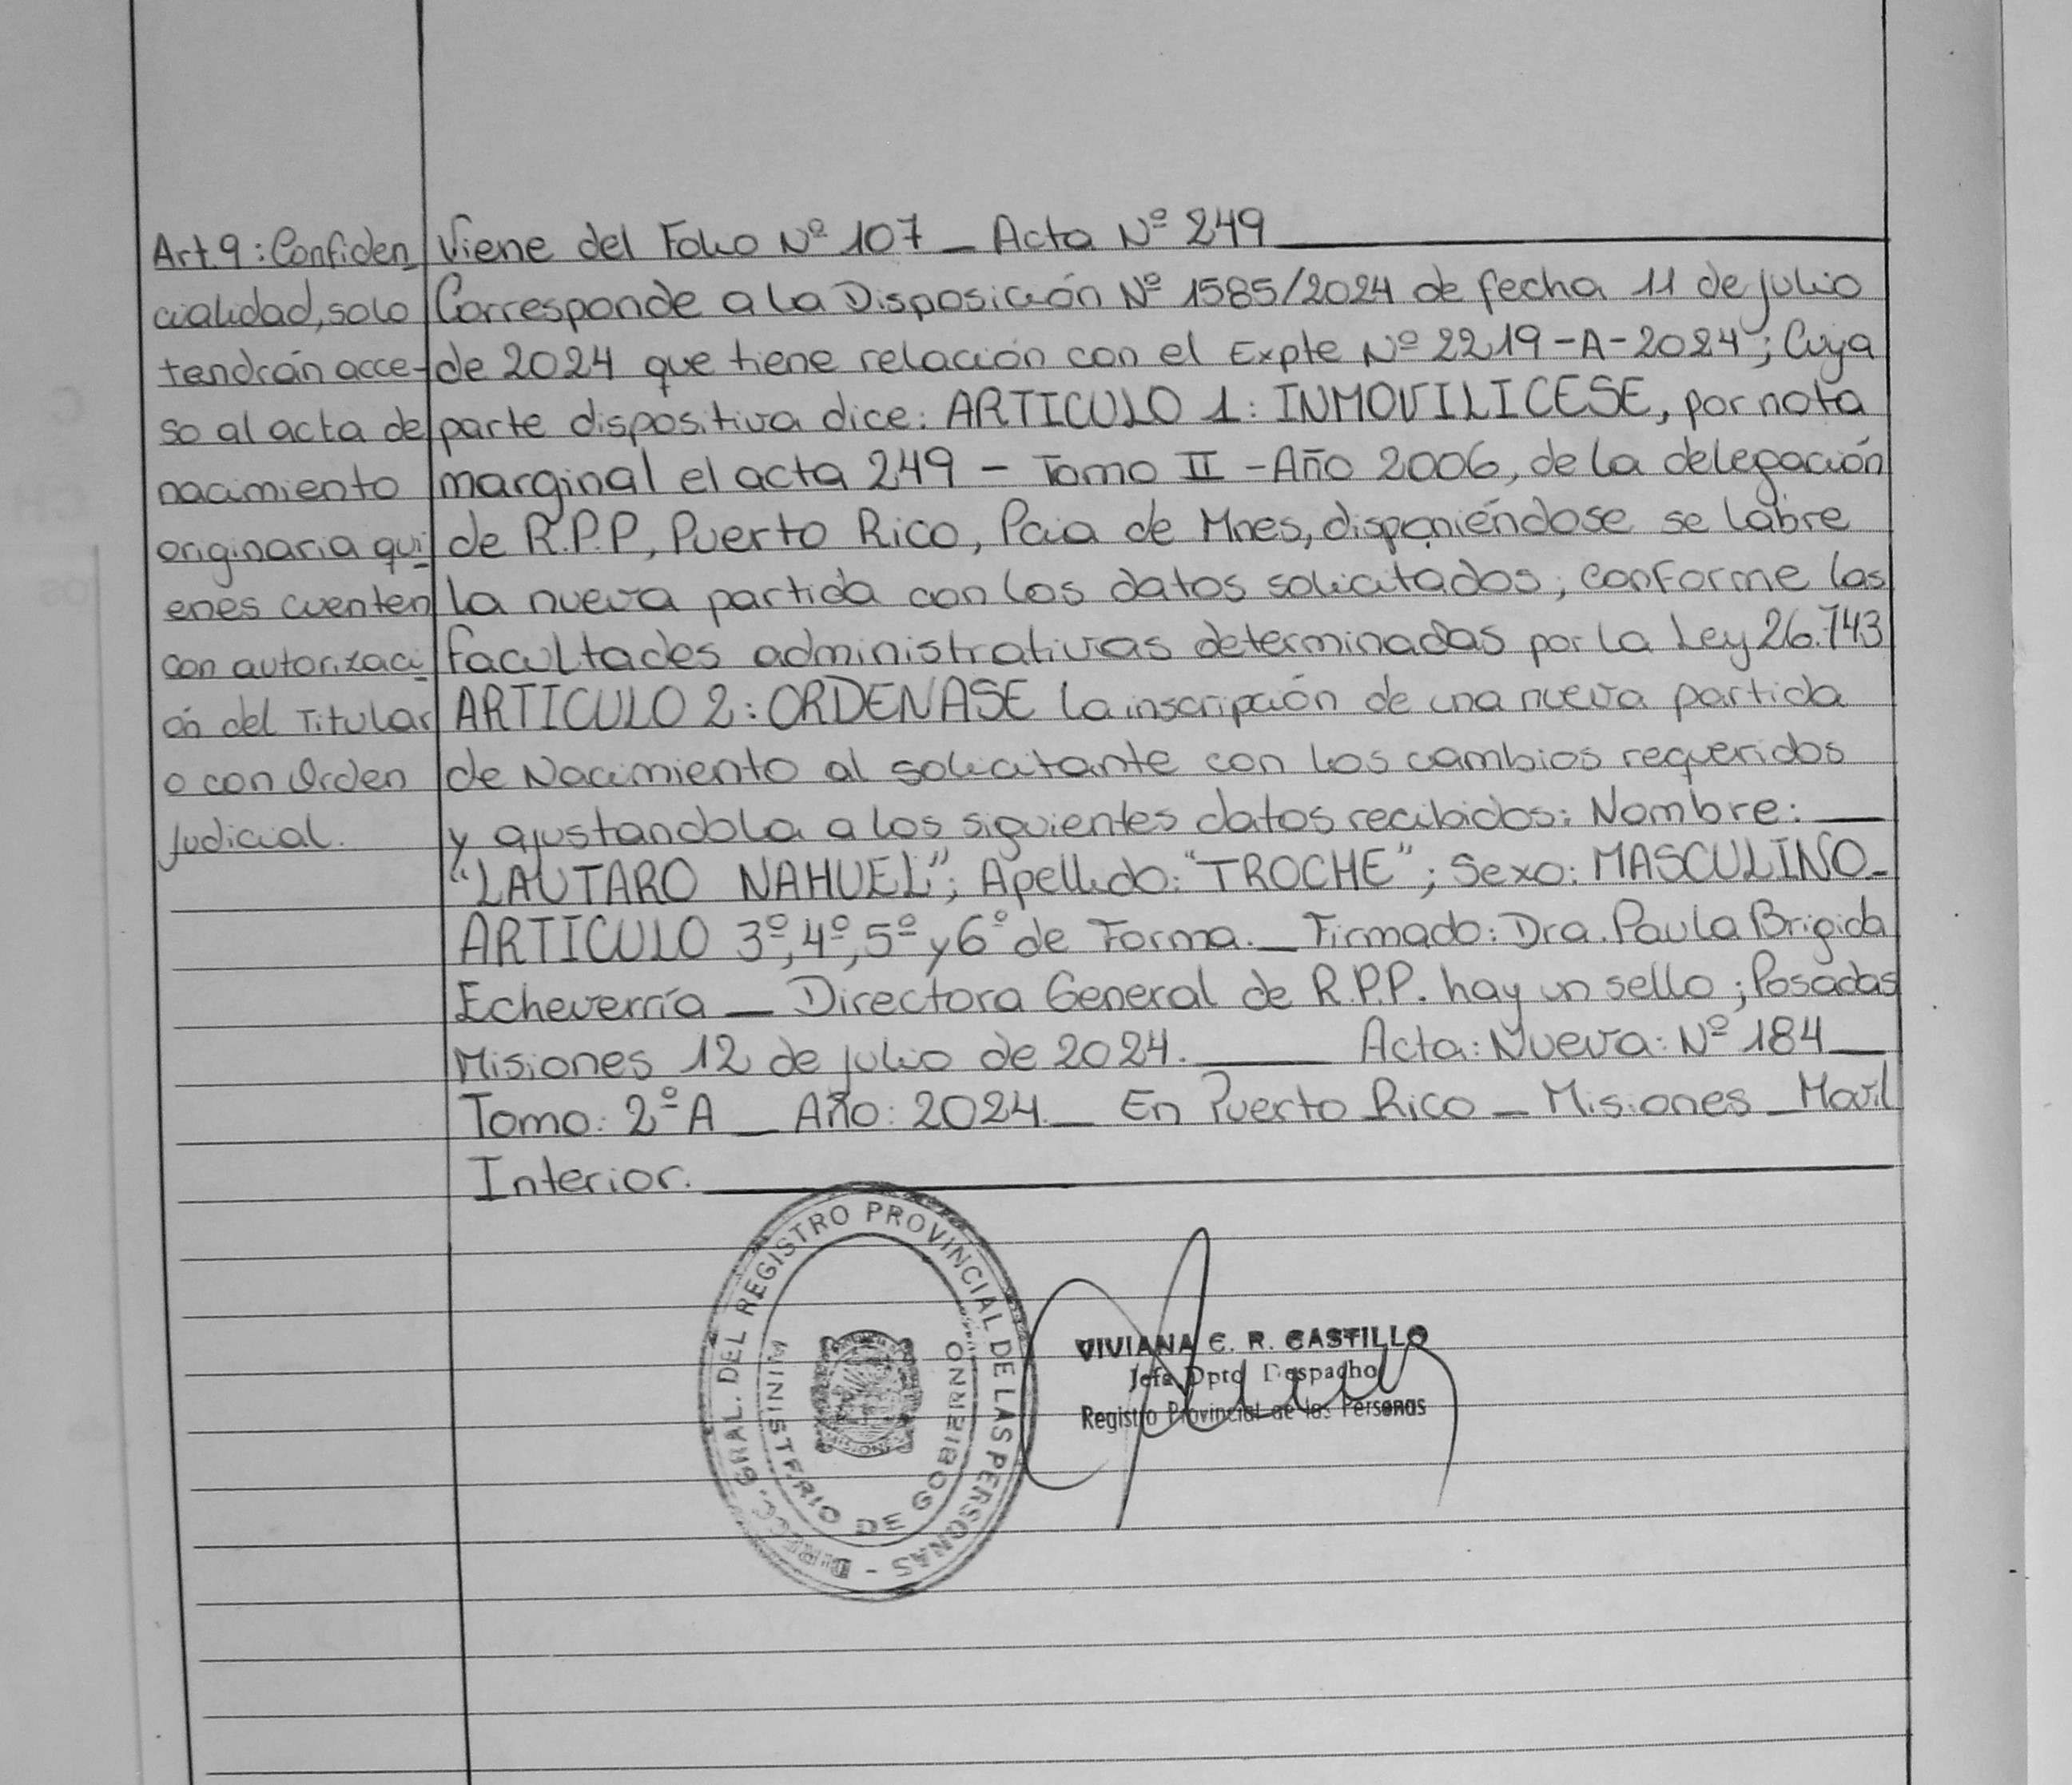 Art.9: Confiden
cialidad, solo
tendrán acce-
so al acta de
nacimiento
originaria qui
enes cuenten
con autorizaci
ón del Titular
o con Orden
Judicial.
Viene del Folio Nº 107 _ Acta Nº 249
Corresponde a la Disposición Nº 1585/2024 de fecha 11 de julio
de 2024 que tiene relación con el Expte Nº 2219-A-2024; Cuya
parte dispositiva dice: ARTICULO 1: INMOVILICESE, por nota
marginal el acta 249 - Tomo II - Año 2006, de la delegación
de R.P.P, Puerto Rico, Pcia de Mnes, disponiéndose se labre
la nueva partida con los datos solicitados; conforme las
facultades administrativas determinadas por la Ley 26.743
ARTICULO 2: ORDENASE la inscripción de una nueva partida
de Nacimiento al solicitante con los cambios requeridos
y ajustandola a los siguientes datos recibidos: Nombre: __
"LAUTARO NAHUEL"; Apellido: "TROCHE"; Sexo: MASCULINO_
ARTICULO 3º, 4º, 5º y 6º de Forma. _ Firmado: Dra. Paula Brigida
Echeverría _ Directora General de R.P.P. hay un sello; Posadas
Misiones 12 de julio de 2024. ___ Acta: Nueva: Nº 184 __
Tomo: 2ºA _ Año: 2024. _ En Puerto Rico _ Misiones _ Movil
Interior.
DIRECC. GRAL. DEL REGISTRO PROVINCIAL DE LAS PERSONAS -
MINISTERIO DE GOBIERNO
MISIONES
VIVIANA C. R. CASTILLO
Jefa Dpto Despacho
Registro Provincial de las Personas